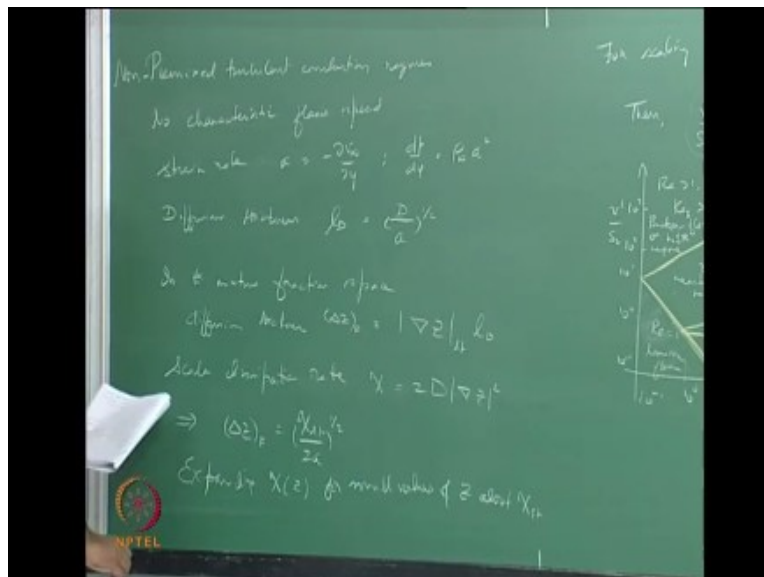 Non-Premixed turbulent combustion regimes
No characteristic flame speed
strain rate a = -∂v∞/∂y ; dp/dy = ρ∞ a²
Diffusion thickness l_D = (D/a)^{1/2}
In mixture fraction space
diffusion thickness (ΔZ)_F = |∇Z|_st l_D
Scalar dissipation rate χ = 2D|∇Z|²
⇒ (ΔZ)_F = (χ_st/2a)^{1/2}
Expanding χ(Z) for small values of Z about χ_st
For scaling
Then,
v'/S_L
10³
10²
10¹
10⁰
10⁻¹
Re=1
laminar
flame
10⁻¹ 10⁰
NPTEL